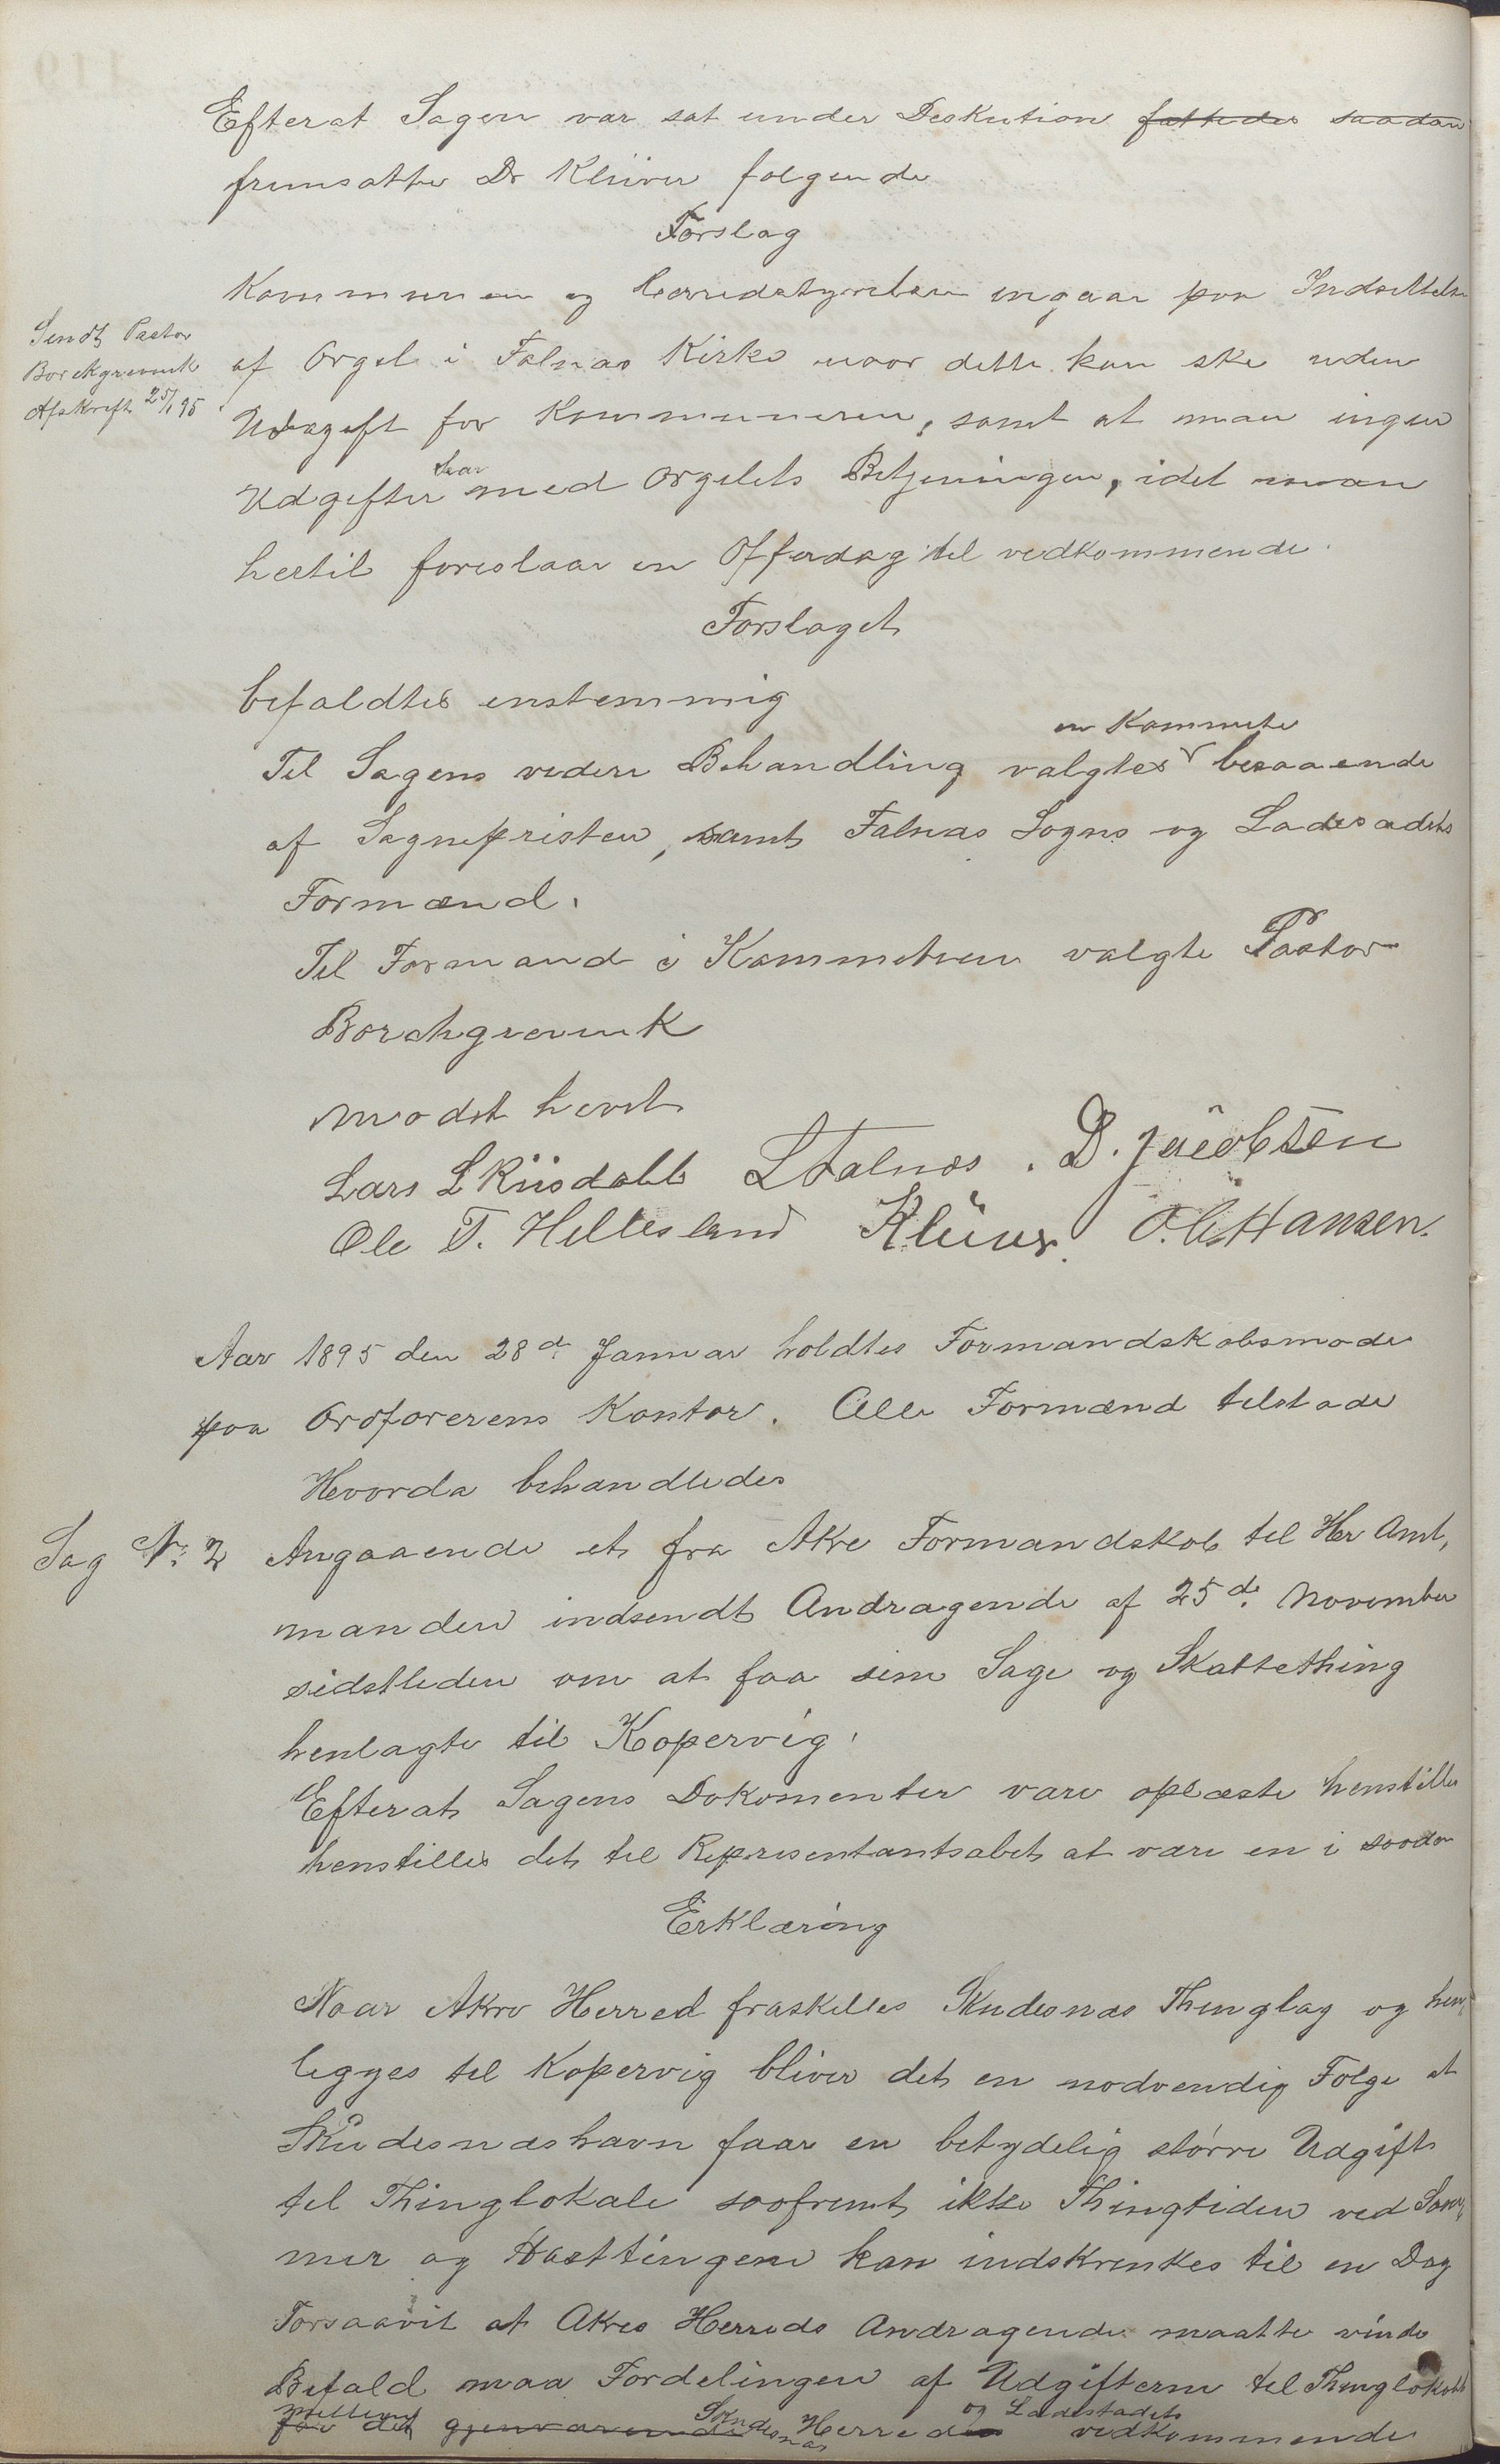 Efterat Sagen var sat under Deskution fattedes saadan
fremsatte Dr Klüver følgende
Forslag
Kommunen og Herredstyrelsen ingaar paa Indsættelse
Sendt Pastor
Borchgrevink
Afskrift 25/1 95
af Orgel i Falnæs Kirke naar dette kan ske uden
Udagift for Kommuneren, samt at man ingen
Udgifter har med Orgelets Betjeningen, idet man
hertil foreslaar en Offerdag til vedkommende.
Forslaget
befaldtes enstemmig
Til Sagens videre Behandling valgtes en Kommite besaaende
af Sognepristen, samt Falnæs Sogns og Ladesadets
Formænd.
Til Formand i Kommiteen valgte Pastor
Borchgrevink
Mødet hevet
Lars L Kiisdahl L Falnæs. D. Jacobsen
Ole T. Hillesland Klüver O. Chr Hansen.
Aar 1895 den 28de Januar holdtes Formandskabsmøde
paa Ordførerens Kontor. Alle Formænd tilstede
Hvorda behandledes
Sag No 2 Angaaende et fra Akre Formandskab til Her Amt,
manden indsendt Andragende af 25de November
sidstleden om at faa sine Sage og Skattething
henlagte til Kopervig.
Efterat Sagens Dokomenter vare oplæste henstilles
henstilles det til Repræsentantsabet at være en i saadan
Erklæring
Naar Akre Herred fraskilles Skudesnæs Thinglag og hen,
legges til Kopervig bliver det en nødvendig Følge at
Skudesnæshavn faar en betydelig større Udgift
til Thinglokale saafremt ikke Thingtiden ved Som,
mer og Høsttingene kan indskrenkes til en Dag
Forsaavit at Akres Herreds Andragende maatte vinde
Bifald maa Fordelingen af Udgifterne til Thinglokalet
mellem for det gjenværende Skudesnæs Herred og Ladestadets vedkommende